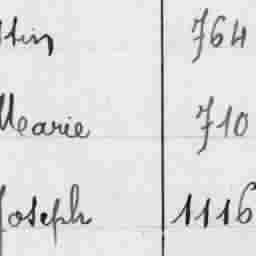 764
Marie 710
Joseph 1116